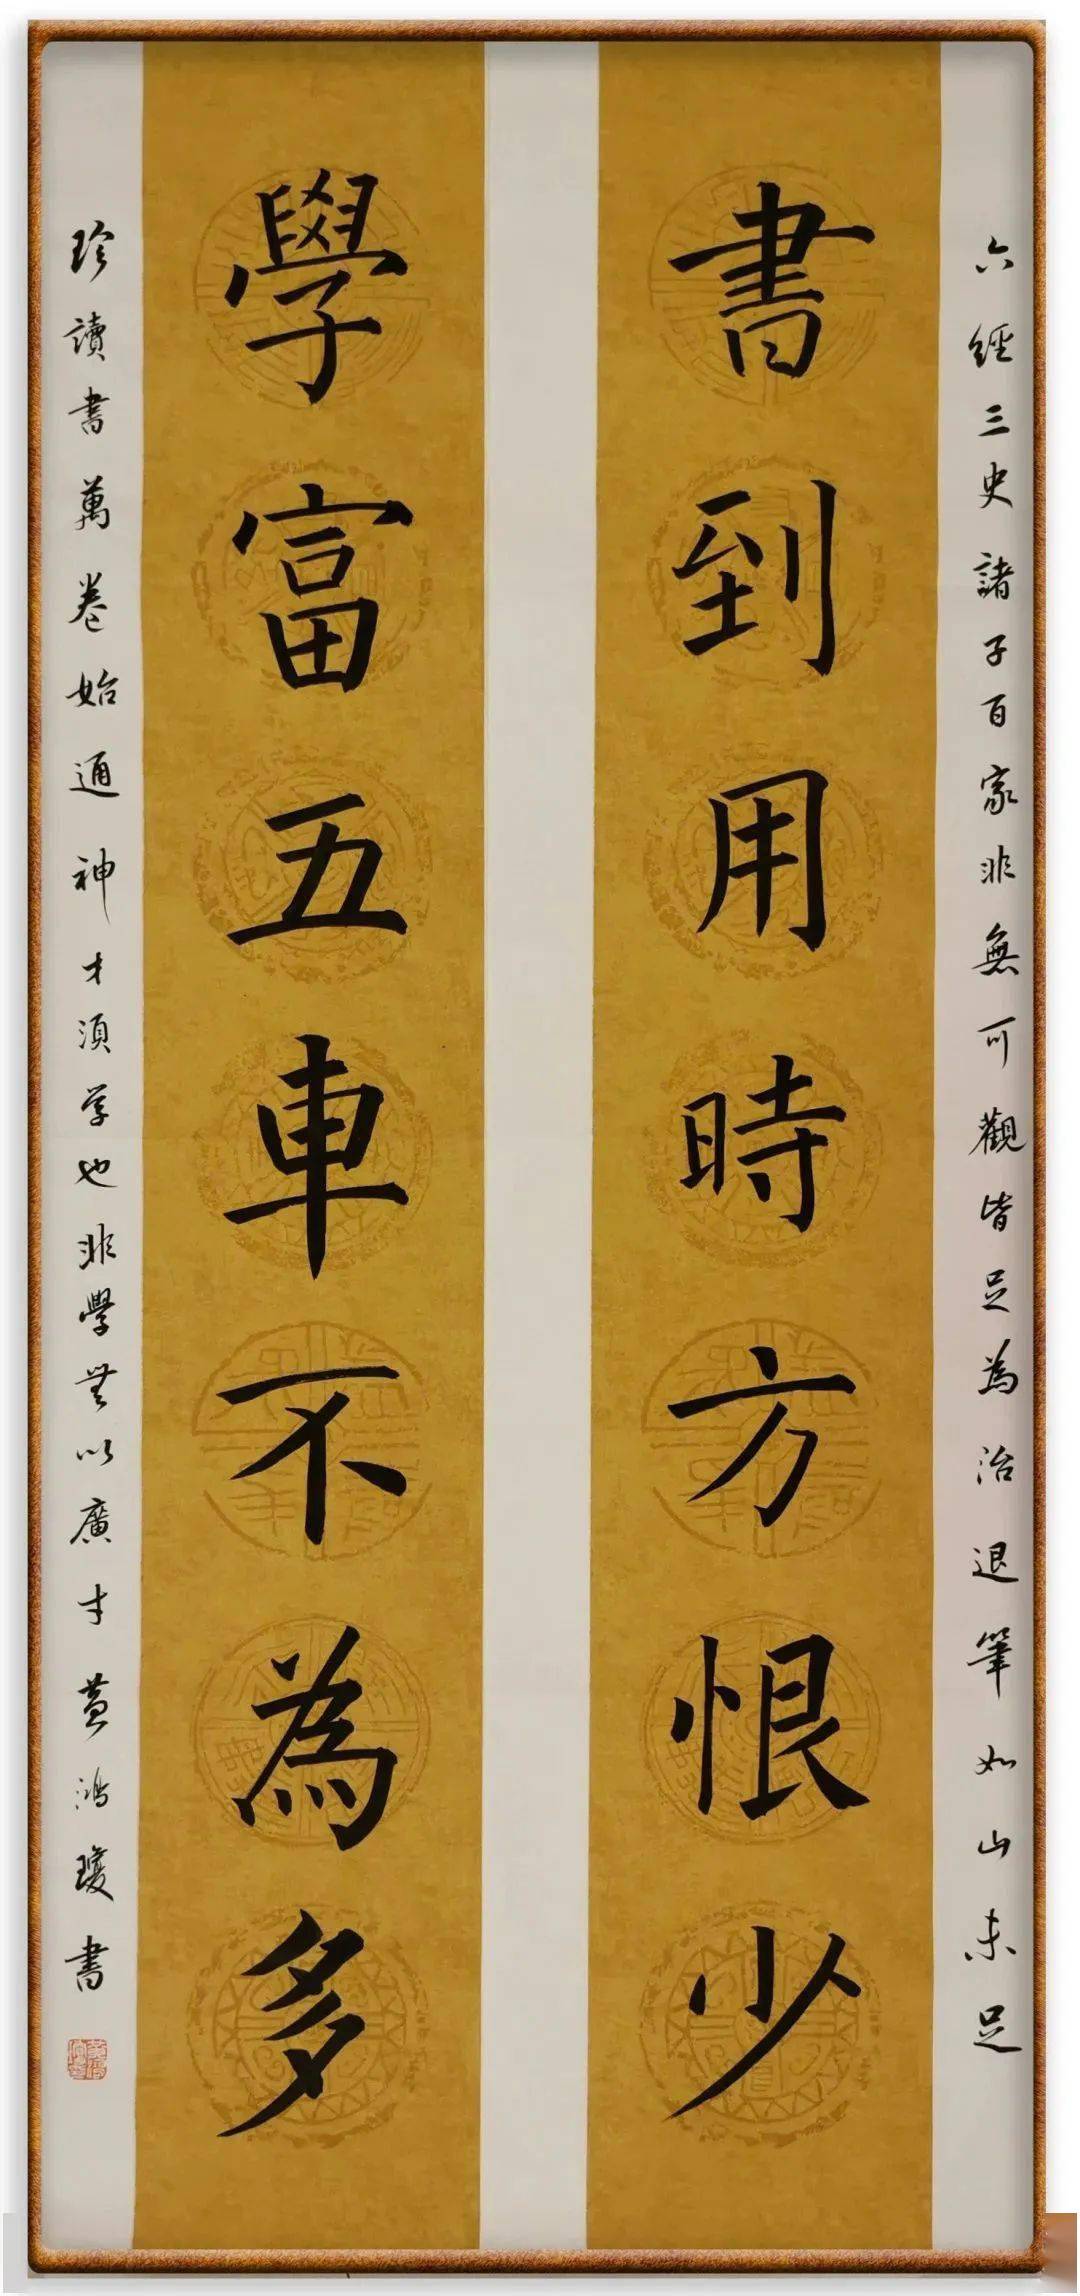 六經三史諸子百家非無可觀皆足為治退筆如山未足
書到用時方恨少
學富五車不為多
珍讀書萬卷始通神才須学也非學無以廣才黄鴻瓊書